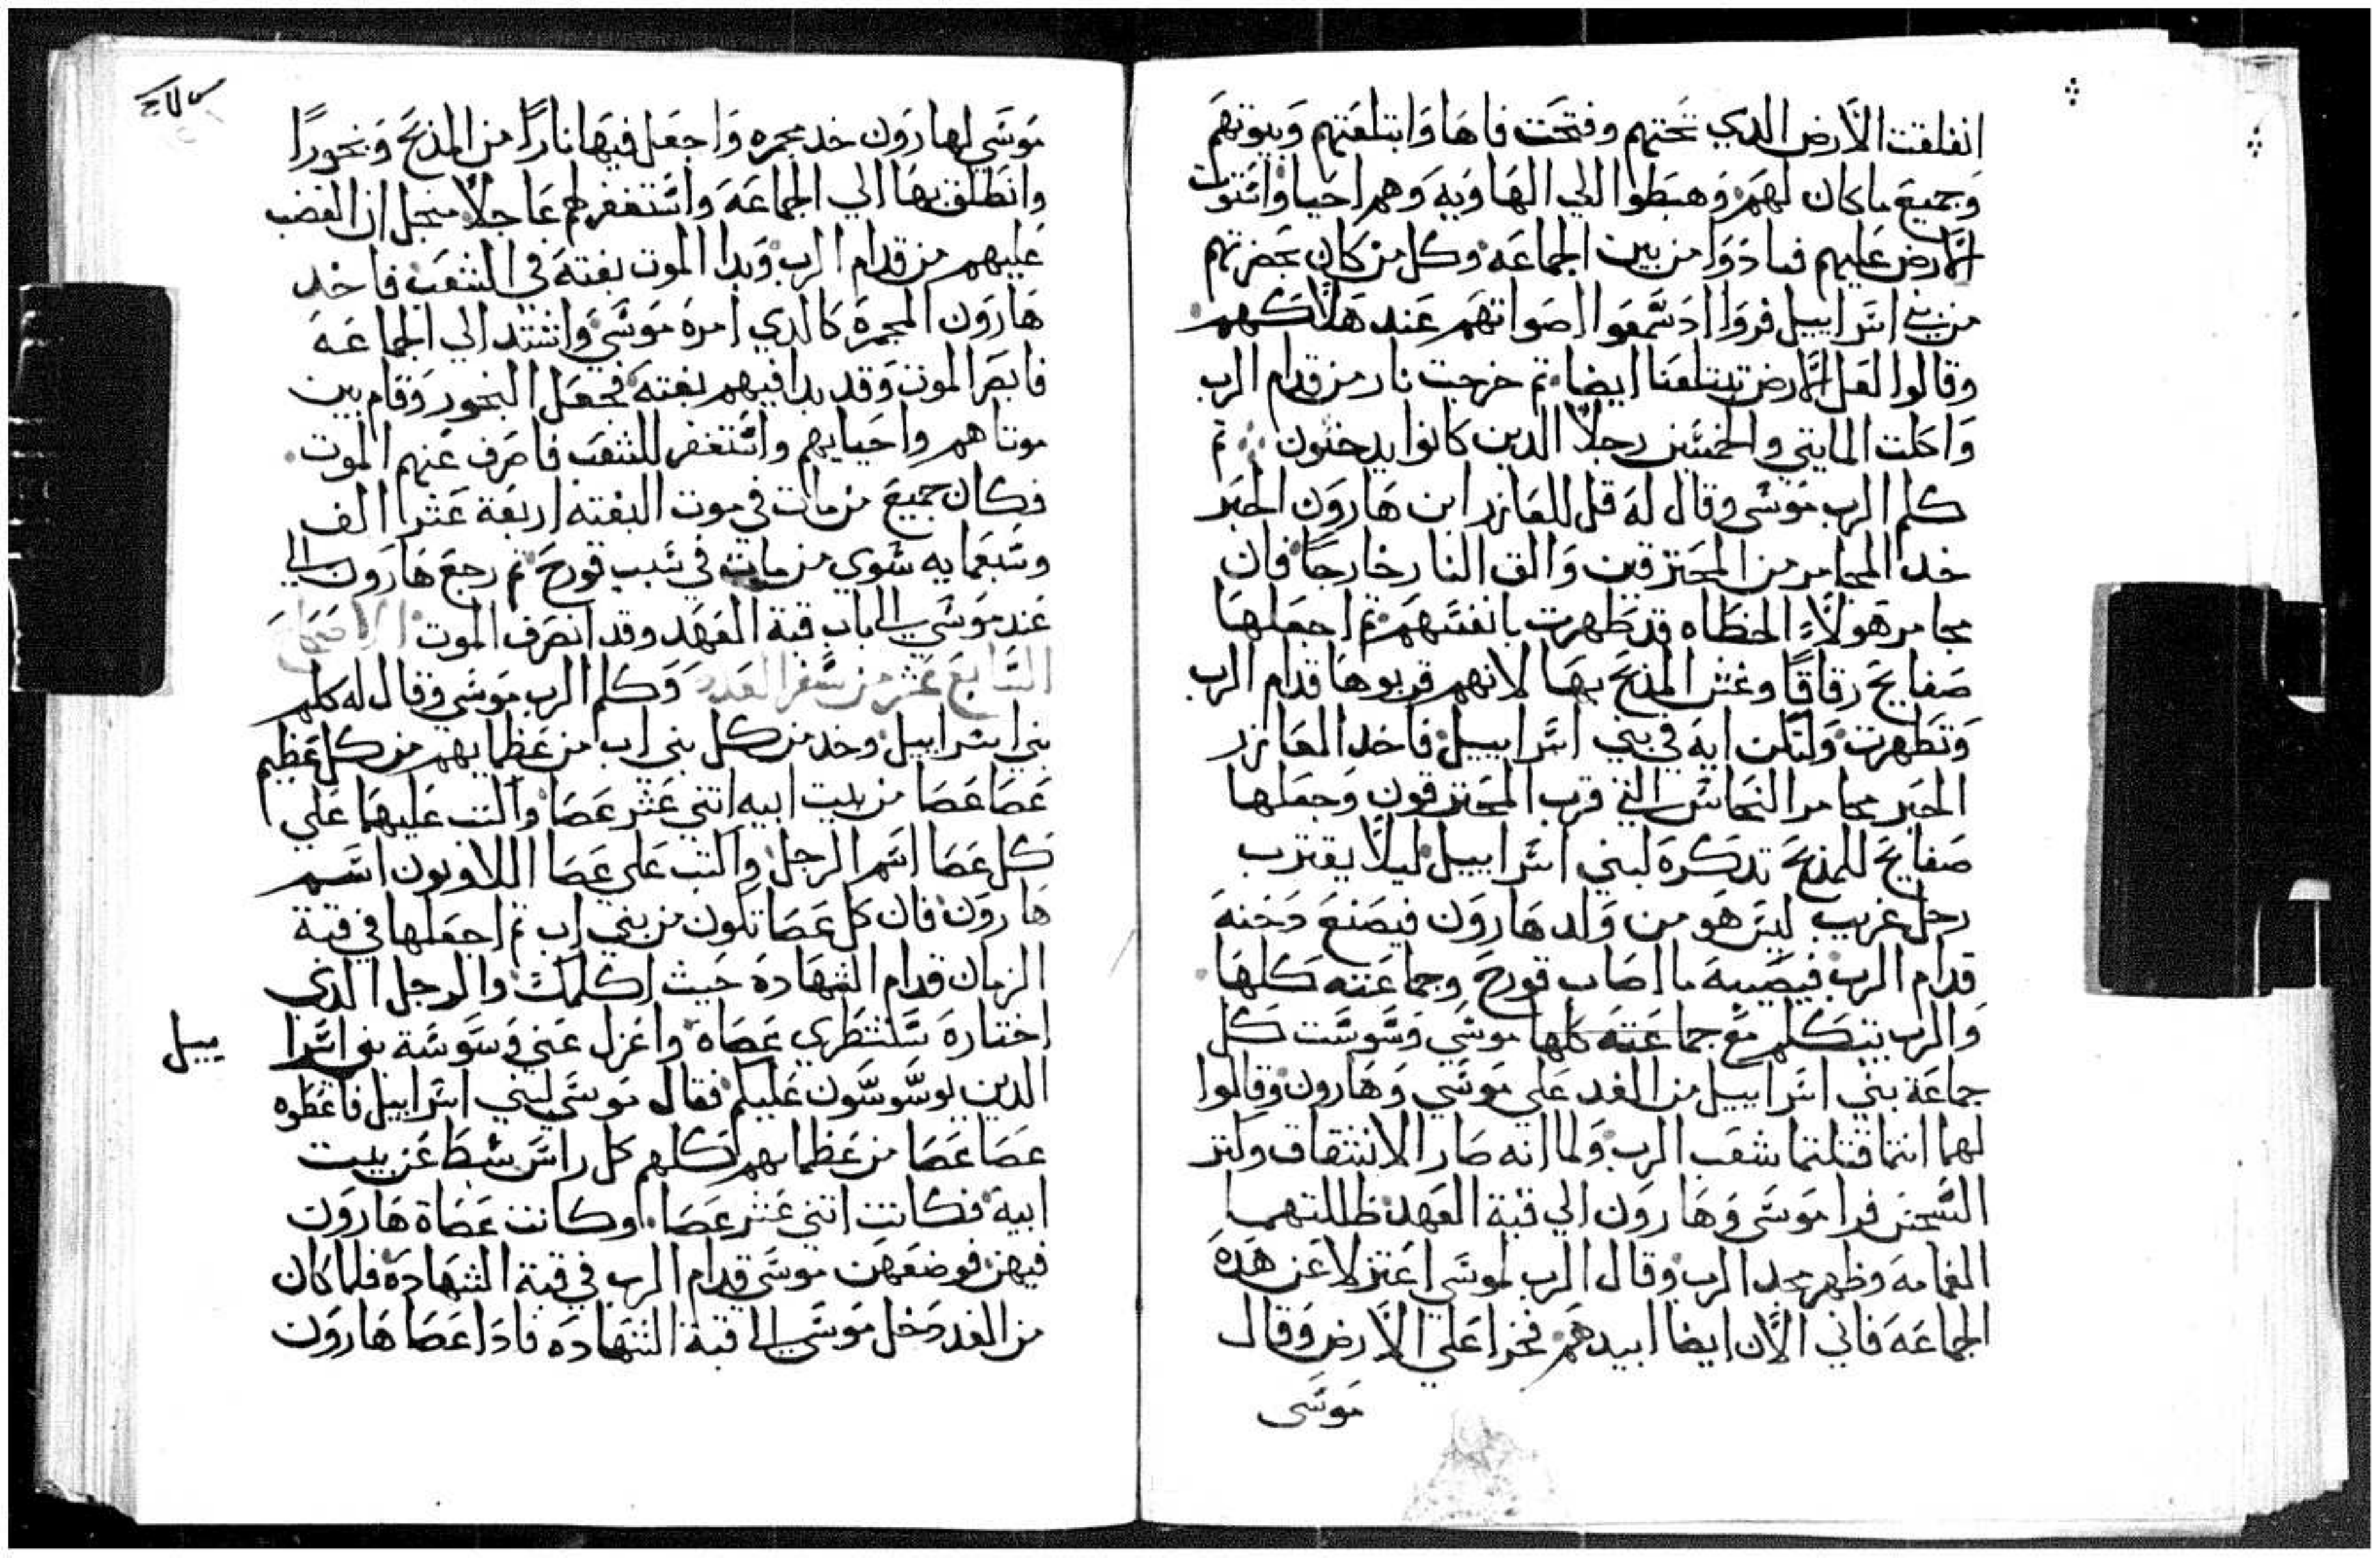 انفلقت الارض الدي تحتهم وفتحت فاها وابتلعتهم وبيوتهم
وجميع ماكان لهم وهبطوا الي الهاويه وهم احيا واستوت
الارض عليهم فبادوا من بين الجماعه وكل من كان بحضرتهم
من بني اسراييل فروا اد سمعوا اصواتهم عند هلاكهم
وقالوا لعل الارض تبتلعنا ايضا تم خرجت نار من قدام الرب
واكلت المايتي والخمسين رجلا الدين كانوا يدخنون تم
كلم الرب موسي وقال له قل للعازر ابن هارون الحبر
خد المجامر من المحترقين والق النار خارجا فان
مجامر هولاء الخطاه قد طهرت بانفسهم تم اجعلها
صفايح رقاقا وغشي المذبح بها لانهم قربوها قدام الرب
وتطهرت ولتكن ايه في بني اسراييل فاخد العازر
الحبر مجامر النحاس التي قرب المحترقون وجعلها
صفايح للمذبح تدكرة لبني اسراييل ليلا يقترب
رجل غريب ليس هو من ولد هارون فيصنع دخنه
قدام الرب فيصيبه ما اصاب قورح وجماعته كلها
والرب يتكلم مع جماعته كلها موسي وسوست كل
جماعة بني اسراييل من الغد علي موسي وهارون وقالوا
لهما انتما قتلتما شعب الرب ولما انه صار الانشقاق ولنر
السجس فرا موسي وهارون الي قبة العهد ظللتهما
الغمامه وظهر مجد الرب وقال الرب لموسي اعتزلا عن هده
الجماعه فاني الان ايضا ابيدهم فخرا علي الارض وقال
موسي
موسي لهارون خد مجمره واجعل فيها نارا من المذبح وبخورا
وانطلق بها الي الجماعه واستغفر لهم عاجلا منجل ان الغضب
عليهم من قدام الرب وبدا الموت بغتة في الشعب فاخد
هارون المجمرة كالدي امره موسي واشتد الي الجماعه
فابصر الموت وقد بدا فيهم بغته فجعل البخور وقام بين
موتاهم واحيايهم واستغفر للشعب فاصرف عنهم الموت
فكان جميع من مات في موت البغته اربعة عشر الف
وسبعمايه سوي من مات في سبب قورح تم رجع هارون الي
عند موسي الي باب قبة العهد وقد انصرف الموت الاصحاح
السابع عشر من سفر العدد وكلم الرب موسي وقال له كلم
بني اسراييل وخد من كل بني اب من عظمايهم من كل عظيم
عصا عصا من بيت ابيه اتني عشر عصا واكتب عليها علي
كل عصا اسم الرجل واكتب علي عصا اللاويون اسم
هارون فان كل عصا تكون من بني اب تم اجعلها في قبة
الزمان قدام الشهادة حيث اكلمك والرجل الدي
اختاره ستنتطري عصاه واعزل عني وسوسة بني اسرا
ييل
الدين يوسوسون عليكم فقال موسي لبني اسراييل فاعطوه
عصا عصا من عظمايهم لكلهم كل راس سبط عن بيت
ابيه فكانت اتني عشر عصا وكانت عصاة هارون
فيهن فوضعهن موسي قدام الرب في قبة الشهادة فلما كان
من الغد دخل موسي الي قبة الشهاده فادا عصا هارون